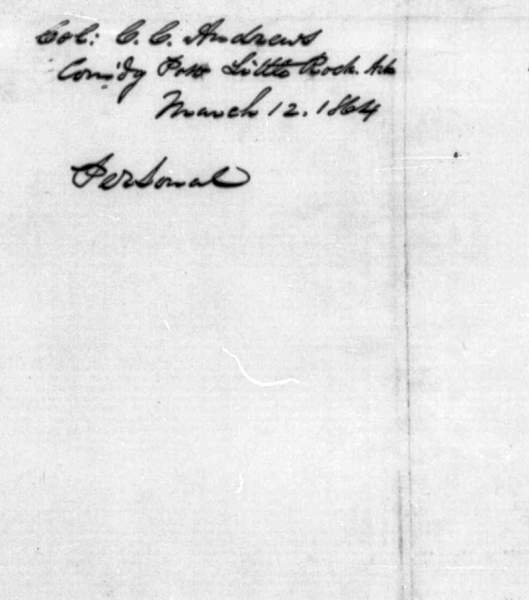 Col: C. C. Andrews
Comdg Post Little Rock. Ark
March 12. 1864
Personal